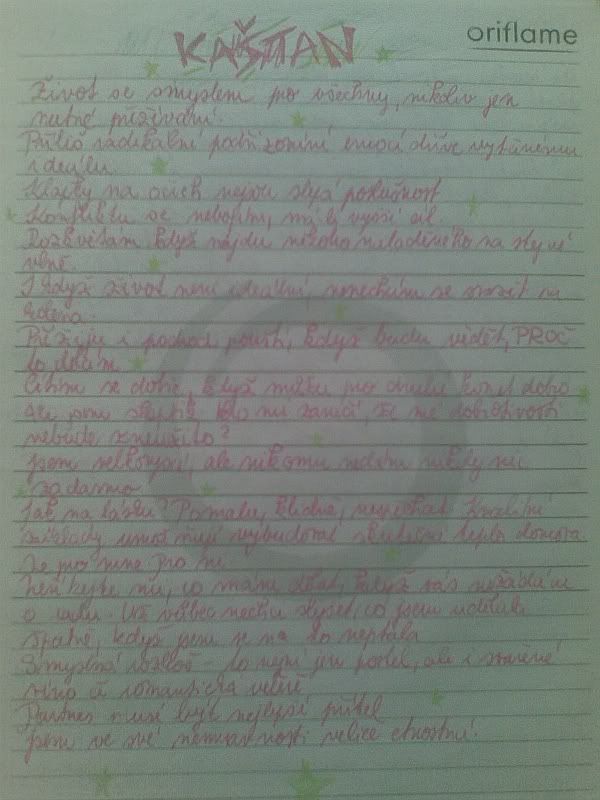 oriflame
KAŠTAN
Život se smyslem pro všechny, nikoliv jen
nutné přežívání.
Příliš radikální podřizování emocí dříve vytčenému
ideálu.
Klapky na očích nejsou slepá poslušnost
Konfliktu se nebojím, má-li vyšší cíl.
Rozkvétám když najdu někoho naladěného na stejné
vlně.
I když život není ideální, nenechám se srazit na
kolena.
Přežiju i pochod pouští, když budu vědět, PROČ
to dělám
Cítím se dobře, když můžu pro druhé konat dobro
Ale jsem skeptik. Kdo mi zaručí, že mé dobrotivosti
nebude zneužito?
Jsem velkorysá, ale nikomu nedám nikdy nic
zadarmo
Jak na lásku? Pomalu, klidně, nespěchat. Kvalitní
základy umožňují vybudovat skutečné teplo domova
Je moc mne pro ni
Neříkejte mi, co mám dělat, když vás nežádám
o radu. Už vůbec nechci slyšet, co jsem udělala
špatně, když jsem se na to neptala
Smyslná rozkoš - to není jen postel, ale i svařené
víno či romantická večeře
Partner musí být nejlepší přítel
Jsem ve své nemravnosti velice ctnostná.